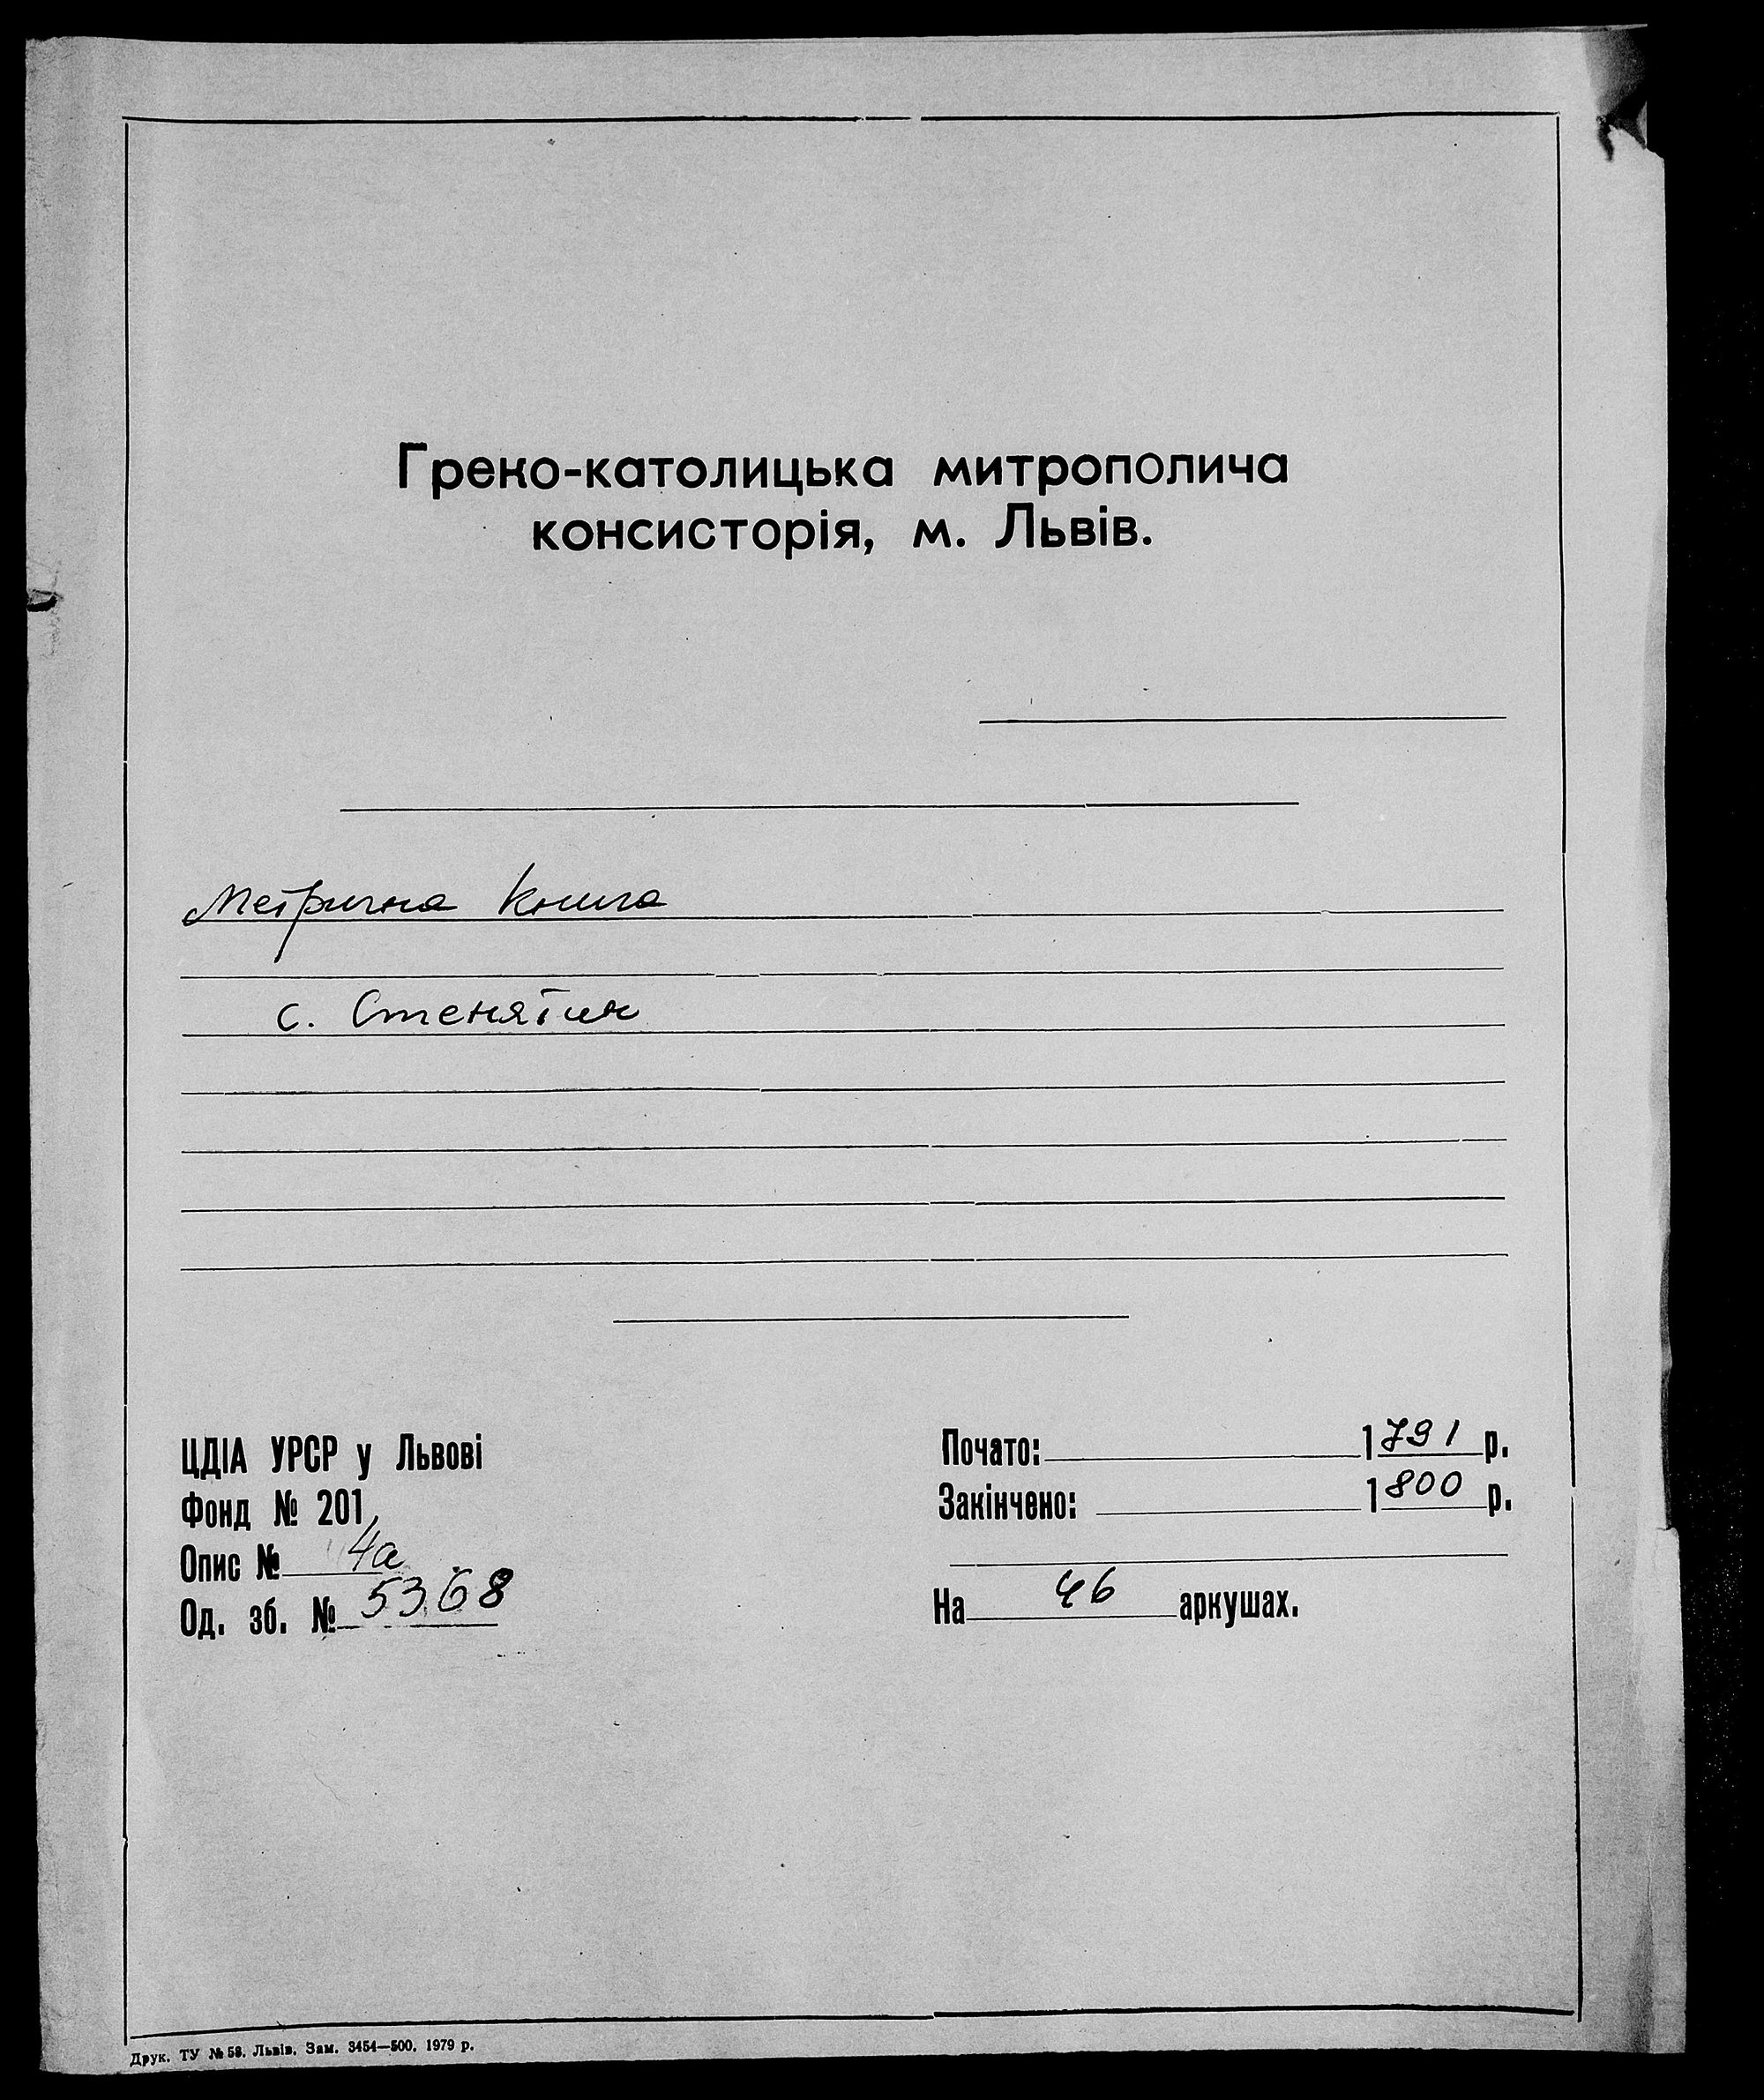 Греко-католицька митрополича
консисторія, м. Львів.
Метрична книга
с. Стенятин
ЦДІА УРСР у Львові
Фонд № 201
Опис № 4а
Од. зб. № 5368
Почато: 1791 р.
Закінчено: 1800 р.
На 46 аркушах.
Друк. ТУ № 58. Львів. Зам. 3454—500. 1979 р.